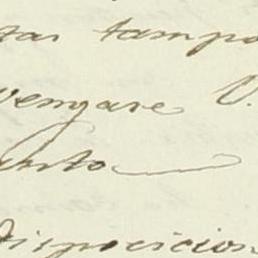 tas tampo
vengare V.
unto
disposicion